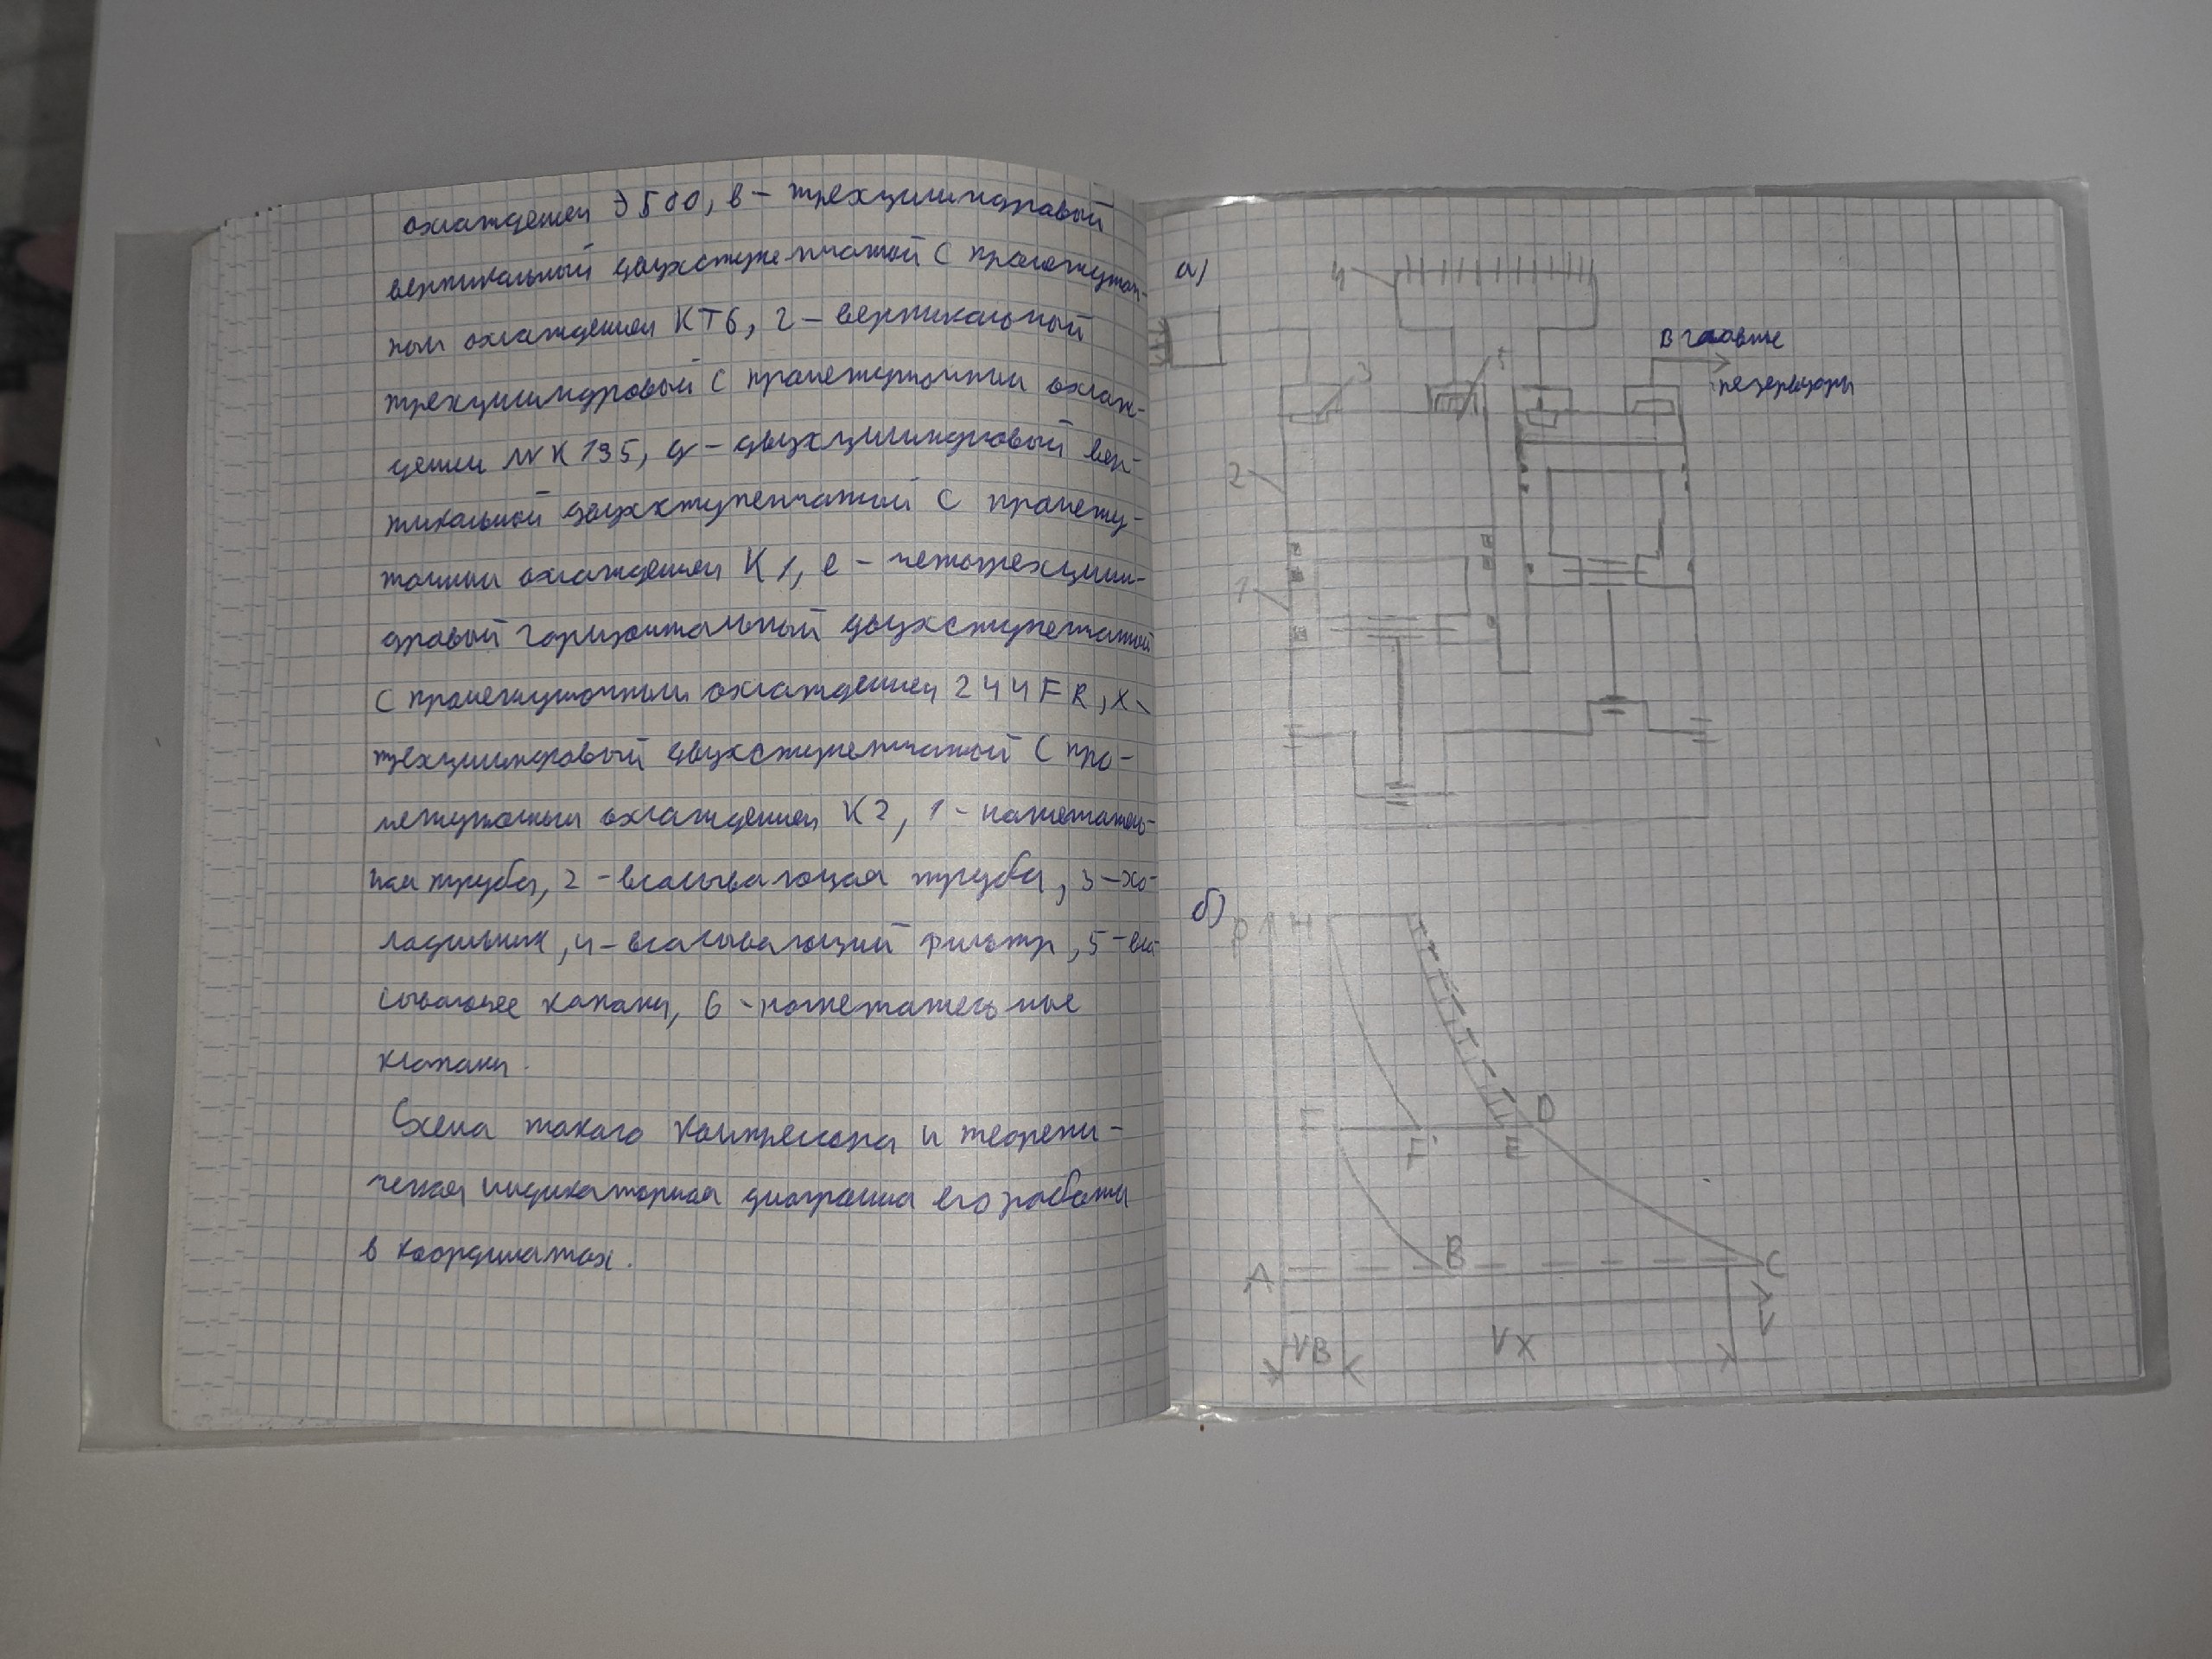 охлаждением Э 500, в - трехцилиндровый
вертикальный двухступенчатой с промежуточ-
ным охлаждением КТ6, г - вертикальный
трехцилиндровый с промежуточным охлаж-
дением МК 135, д - двухцилиндровый вер-
тикальный двухступенчатый с промежу-
точным охлаждением К1, е - четырехцилин-
дровый горизонтальный двухступенчатый
с промежуточным охлаждением 244FR, ж -
трехцилиндровый двухступенчатый с про-
межуточным охлаждением К2, 1 - нагнетатель-
ная труба, 2 - всасывающая труба, 3 - хо-
лодильник, 4 - всасывающий фильтр, 5 - вса
сывающее клапаны, 6 - нагнетательные
клапаны.
Схема такого компрессора и теорети-
ческая индикаторная диаграмма его работы
в координатах.
а)
4
В главные
резервуары
3
5
2
1
б)
P
H
D
E
F
B
A
C
V
VB
VX